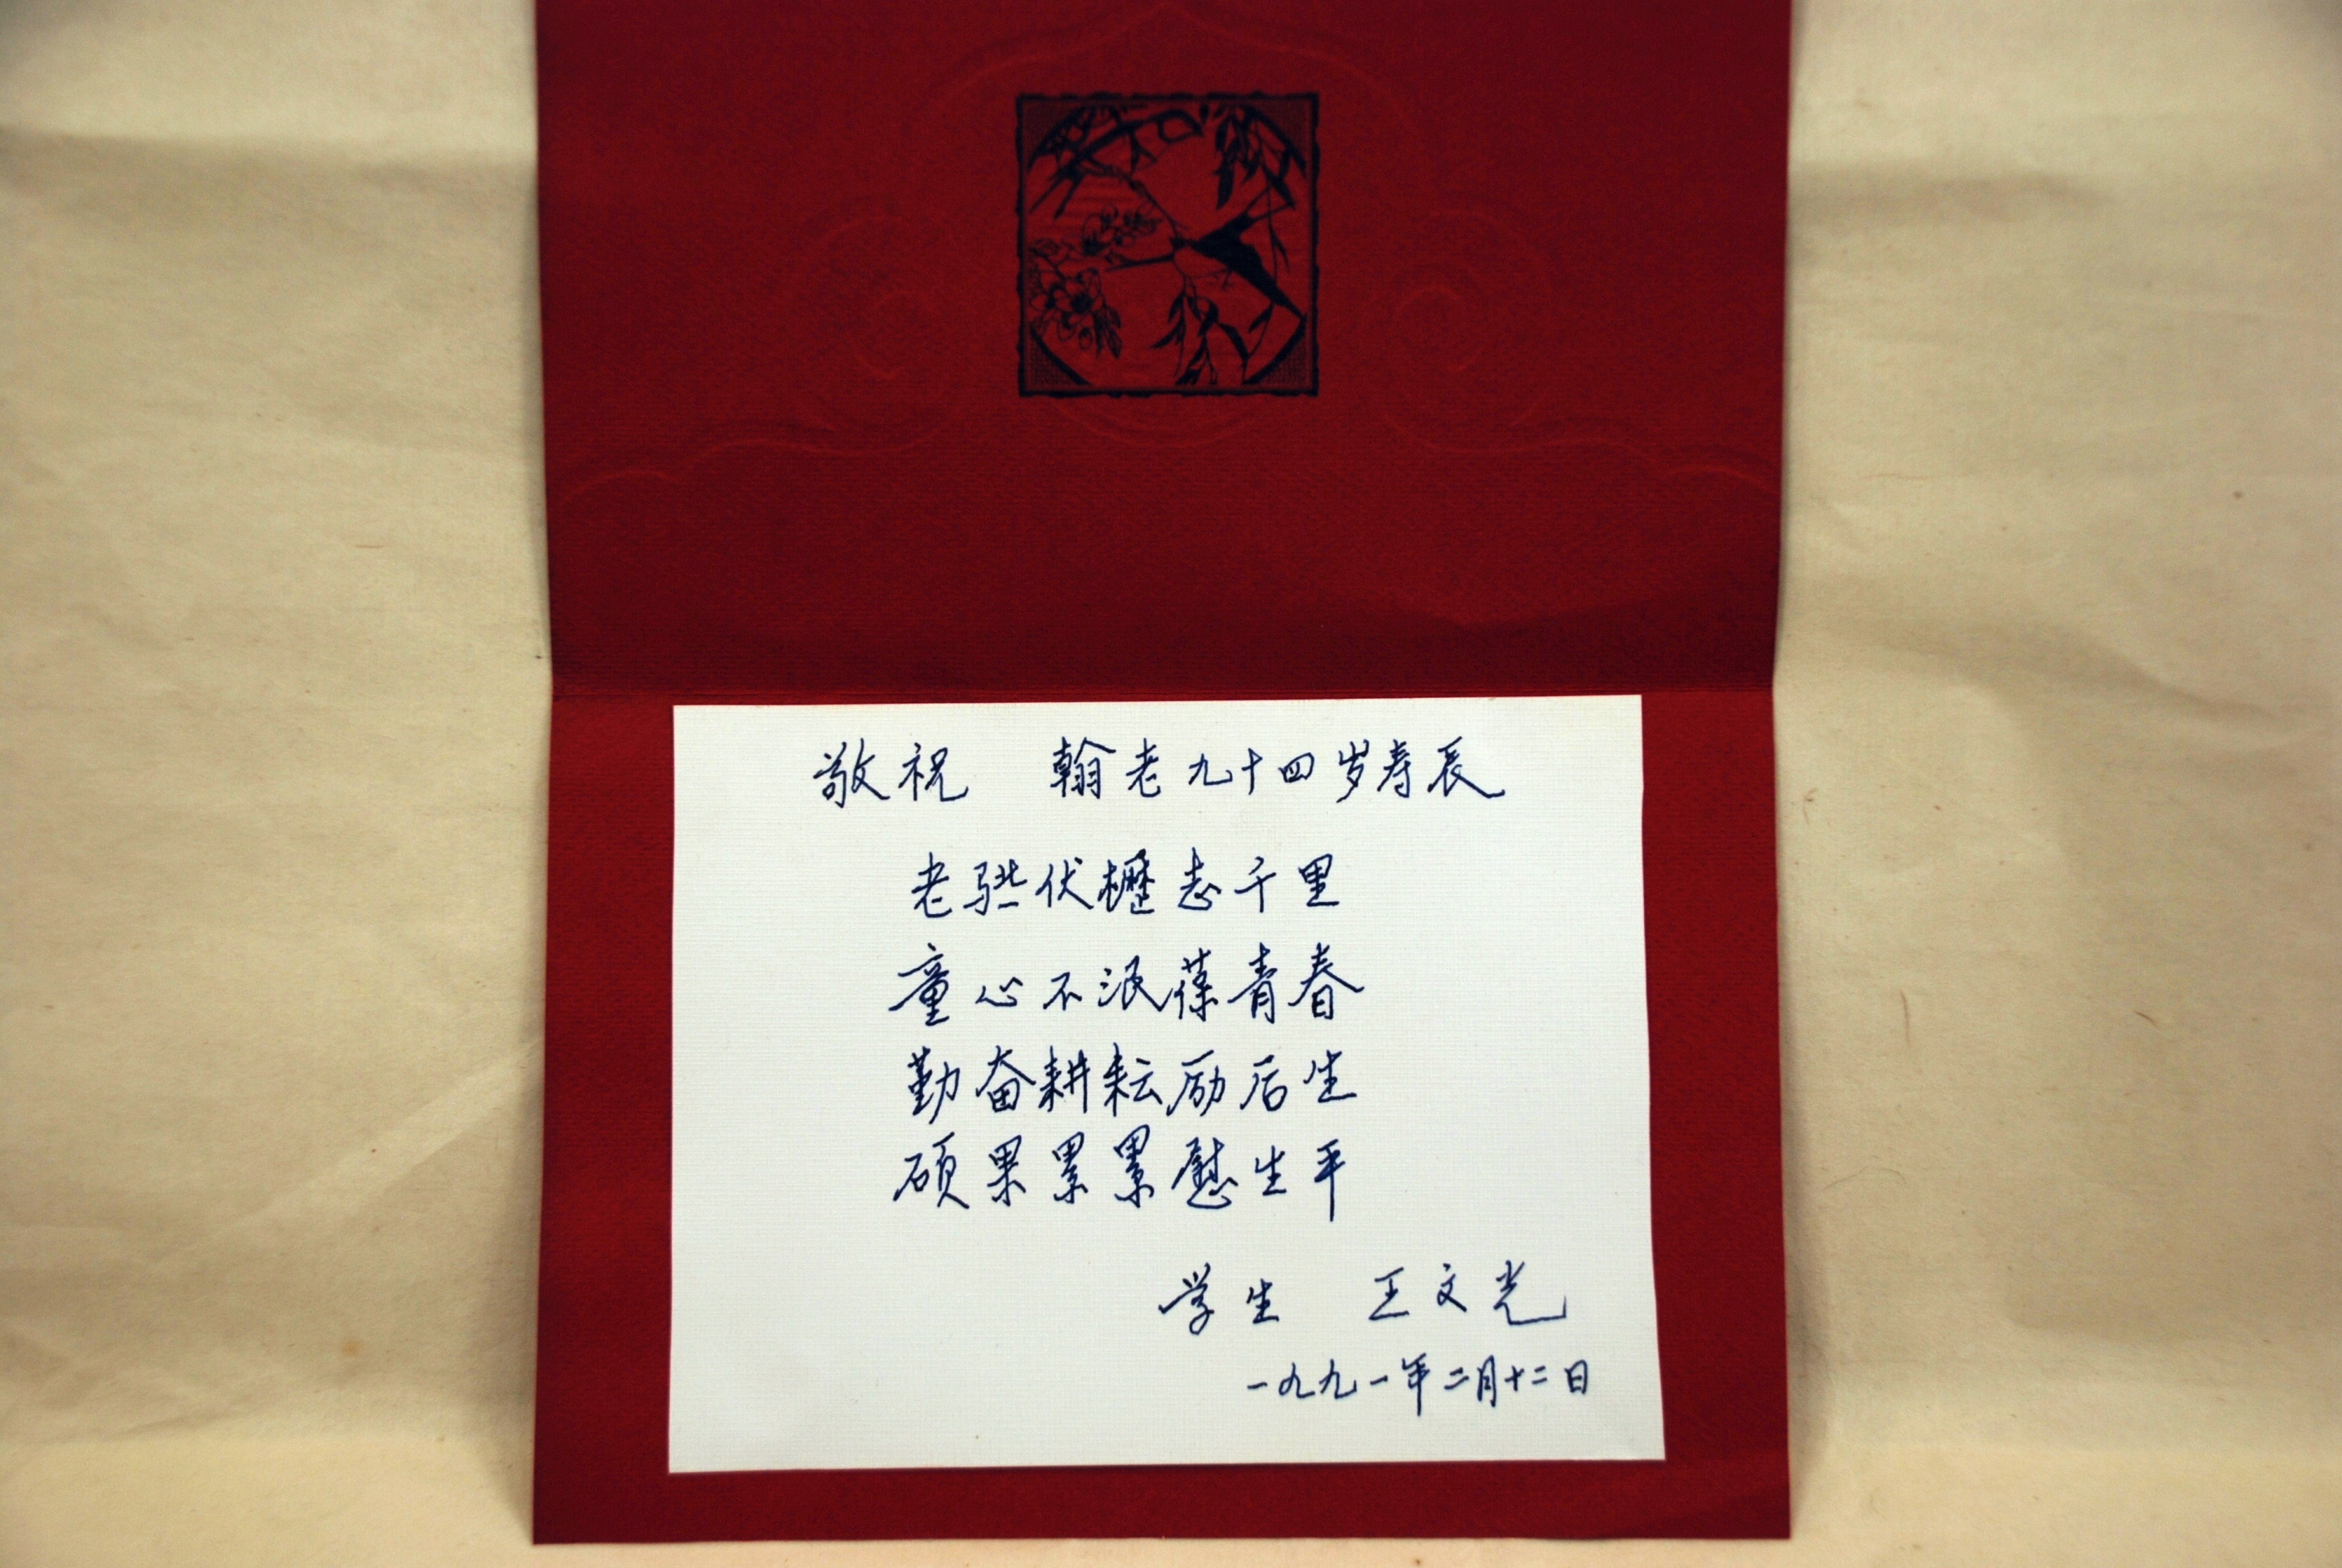 敬祝 翰老九十四岁寿辰
老骥伏櫪志千里
童心不泯葆青春
勤奋耕耘励后生
硕果累累慰生平
学生 王文光
一九九一年二月十二日